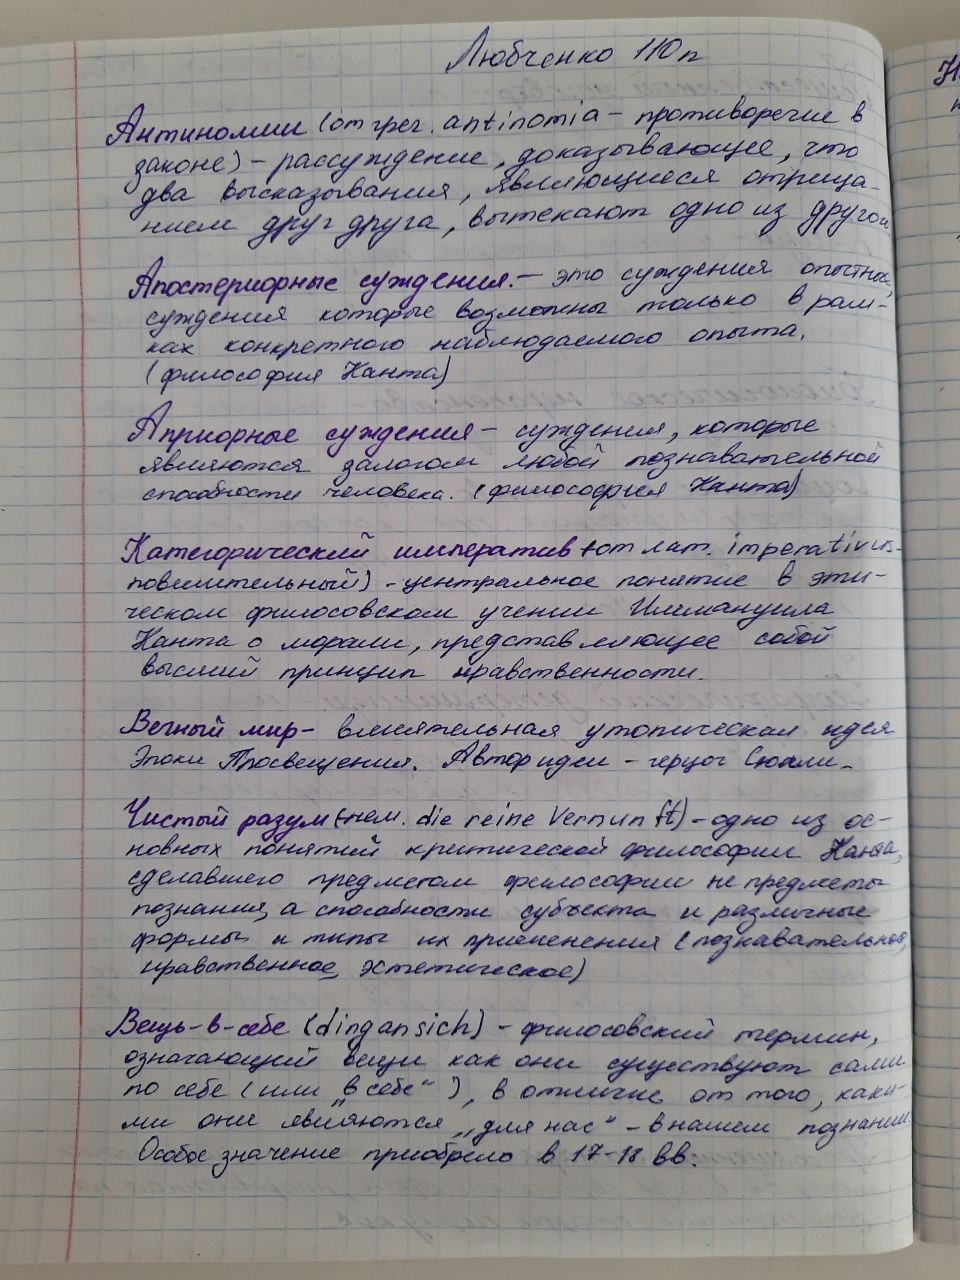 Любченко 110п
Антиномии (от грег. antinomia - противоречие в
законе) - рассуждение, доказывающее, что
два высказывания, являющиеся отрица-
нием друг друга, вытекают одно из другого.
Апостериорные суждения. - это суждения опытные,
суждения которые возможны только в рам-
ках конкретного наблюдаемого опыта.
(философия Канта)
Априорные суждения - суждения, которые
являются залогом любой познавательной
способности человека. (философия Канта)
Категорический императив (от лат. imperativus-
повелительный) - центральное понятие в эти-
ческом философском учении Иммануила
Канта о морали, представляющее собой
высший принцип нравственности.
Вечный мир - влиятельная утопическая идея
Эпохи Просвещения. Автор идеи - герцог Сюлли.
Чистый разум (нем. die reine Vernunft) - одно из ос-
новных понятий критической философии Канта,
сделавшего предметом философии не предметы
познания, а способности субъекта и различные
формы и типы их применения (познавательное,
нравственное, эстетическое)
Вещь-в-себе (dingansich) - философский термин,
означающий вещи как они существуют сами
по себе (или „в себе“), в отличие от того, каки-
ми они являются „для нас“ - в нашем познании.
Особое значение приобрело в 17-18 вв.
Н